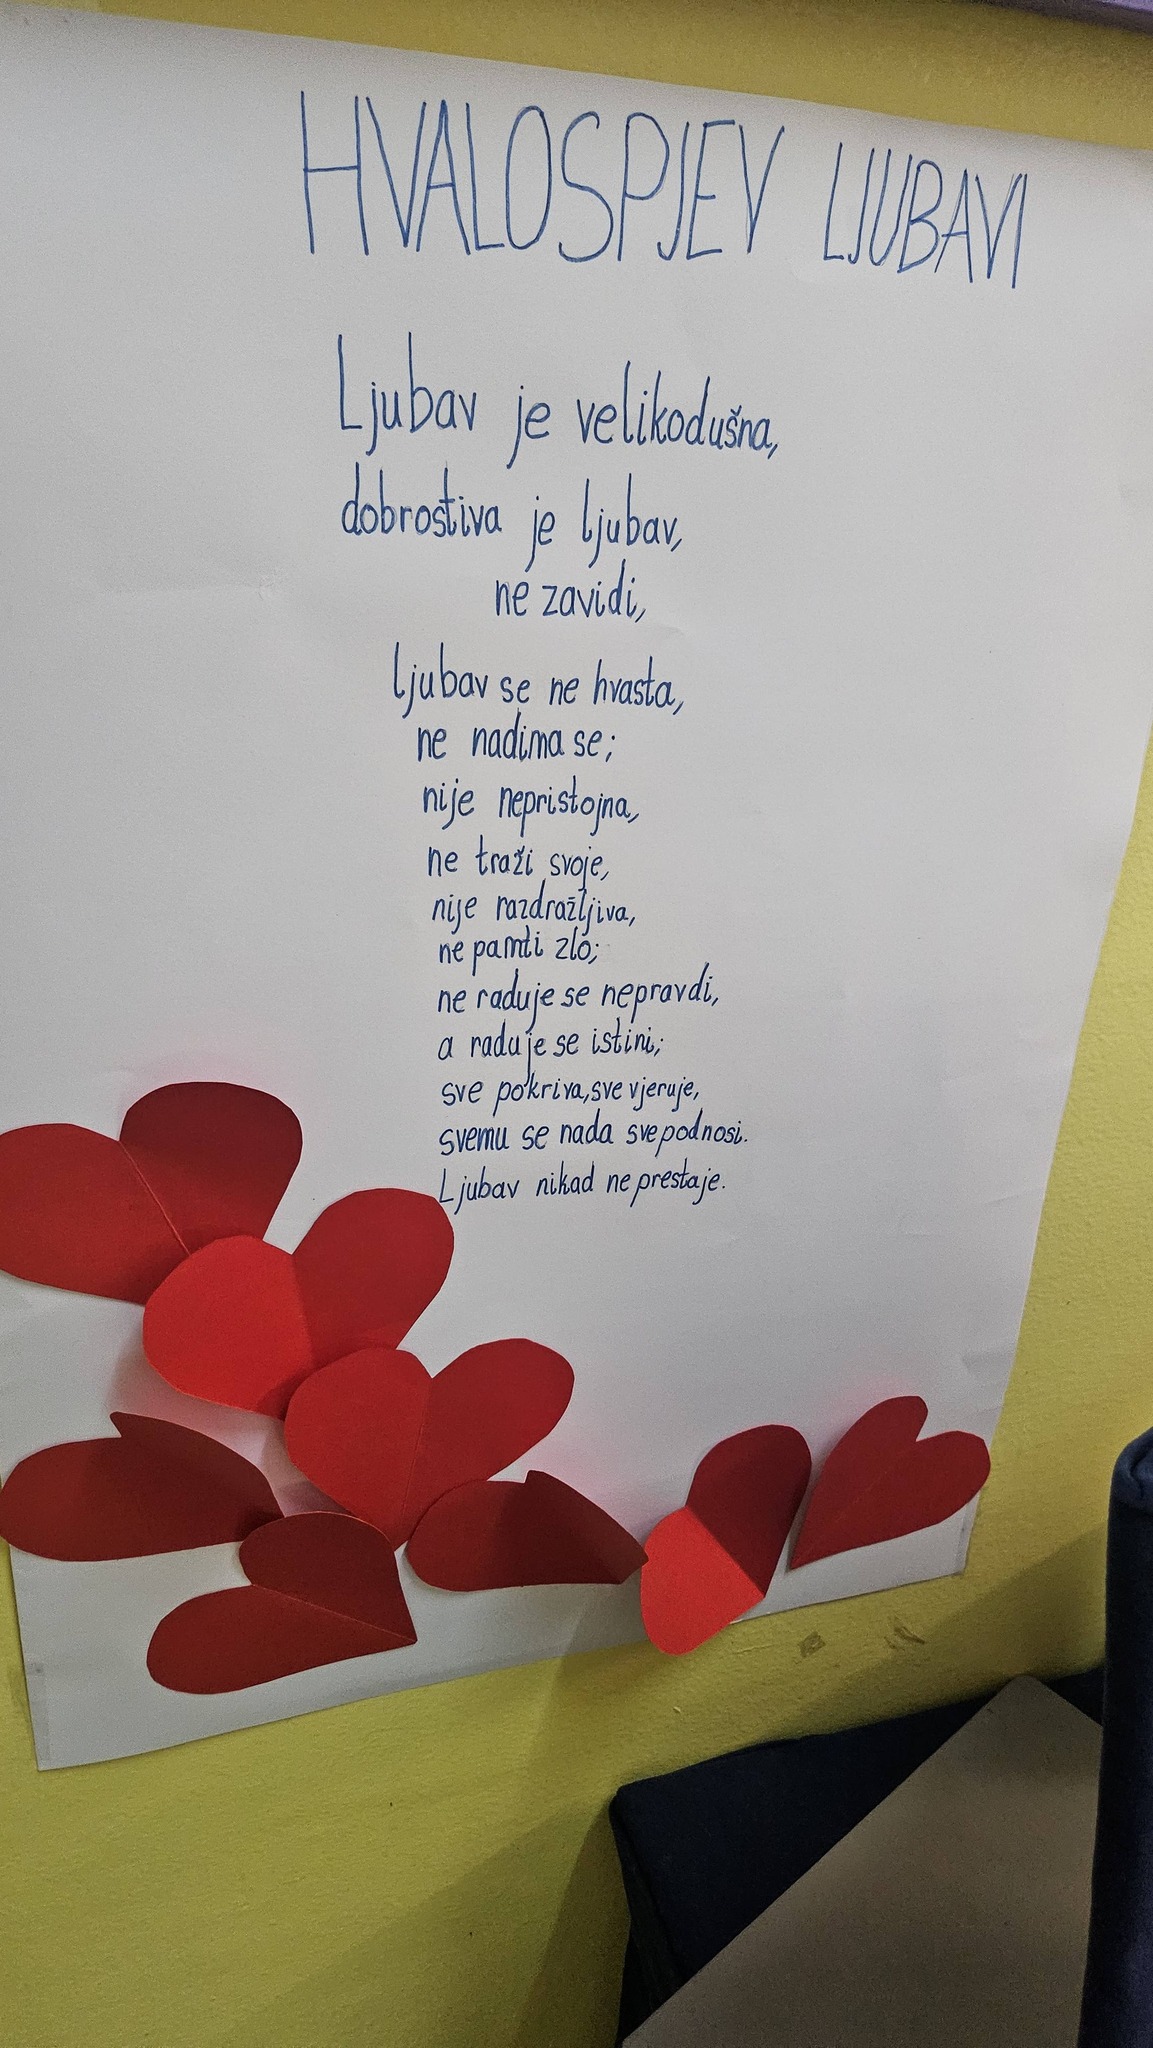 HVALOSPJEV LJUBAVI
Ljubav je velikodušna,
dobrostiva je ljubav,
ne zavidi,
ljubav se ne hvasta,
ne nadima se;
nije nepristojna,
ne traži svoje,
nije razdražljiva,
ne pamti zlo;
ne raduje se nepravdi,
a raduje se istini;
sve pokriva, sve vjeruje,
svemu se nada sve podnosi.
Ljubav nikad ne prestaje.